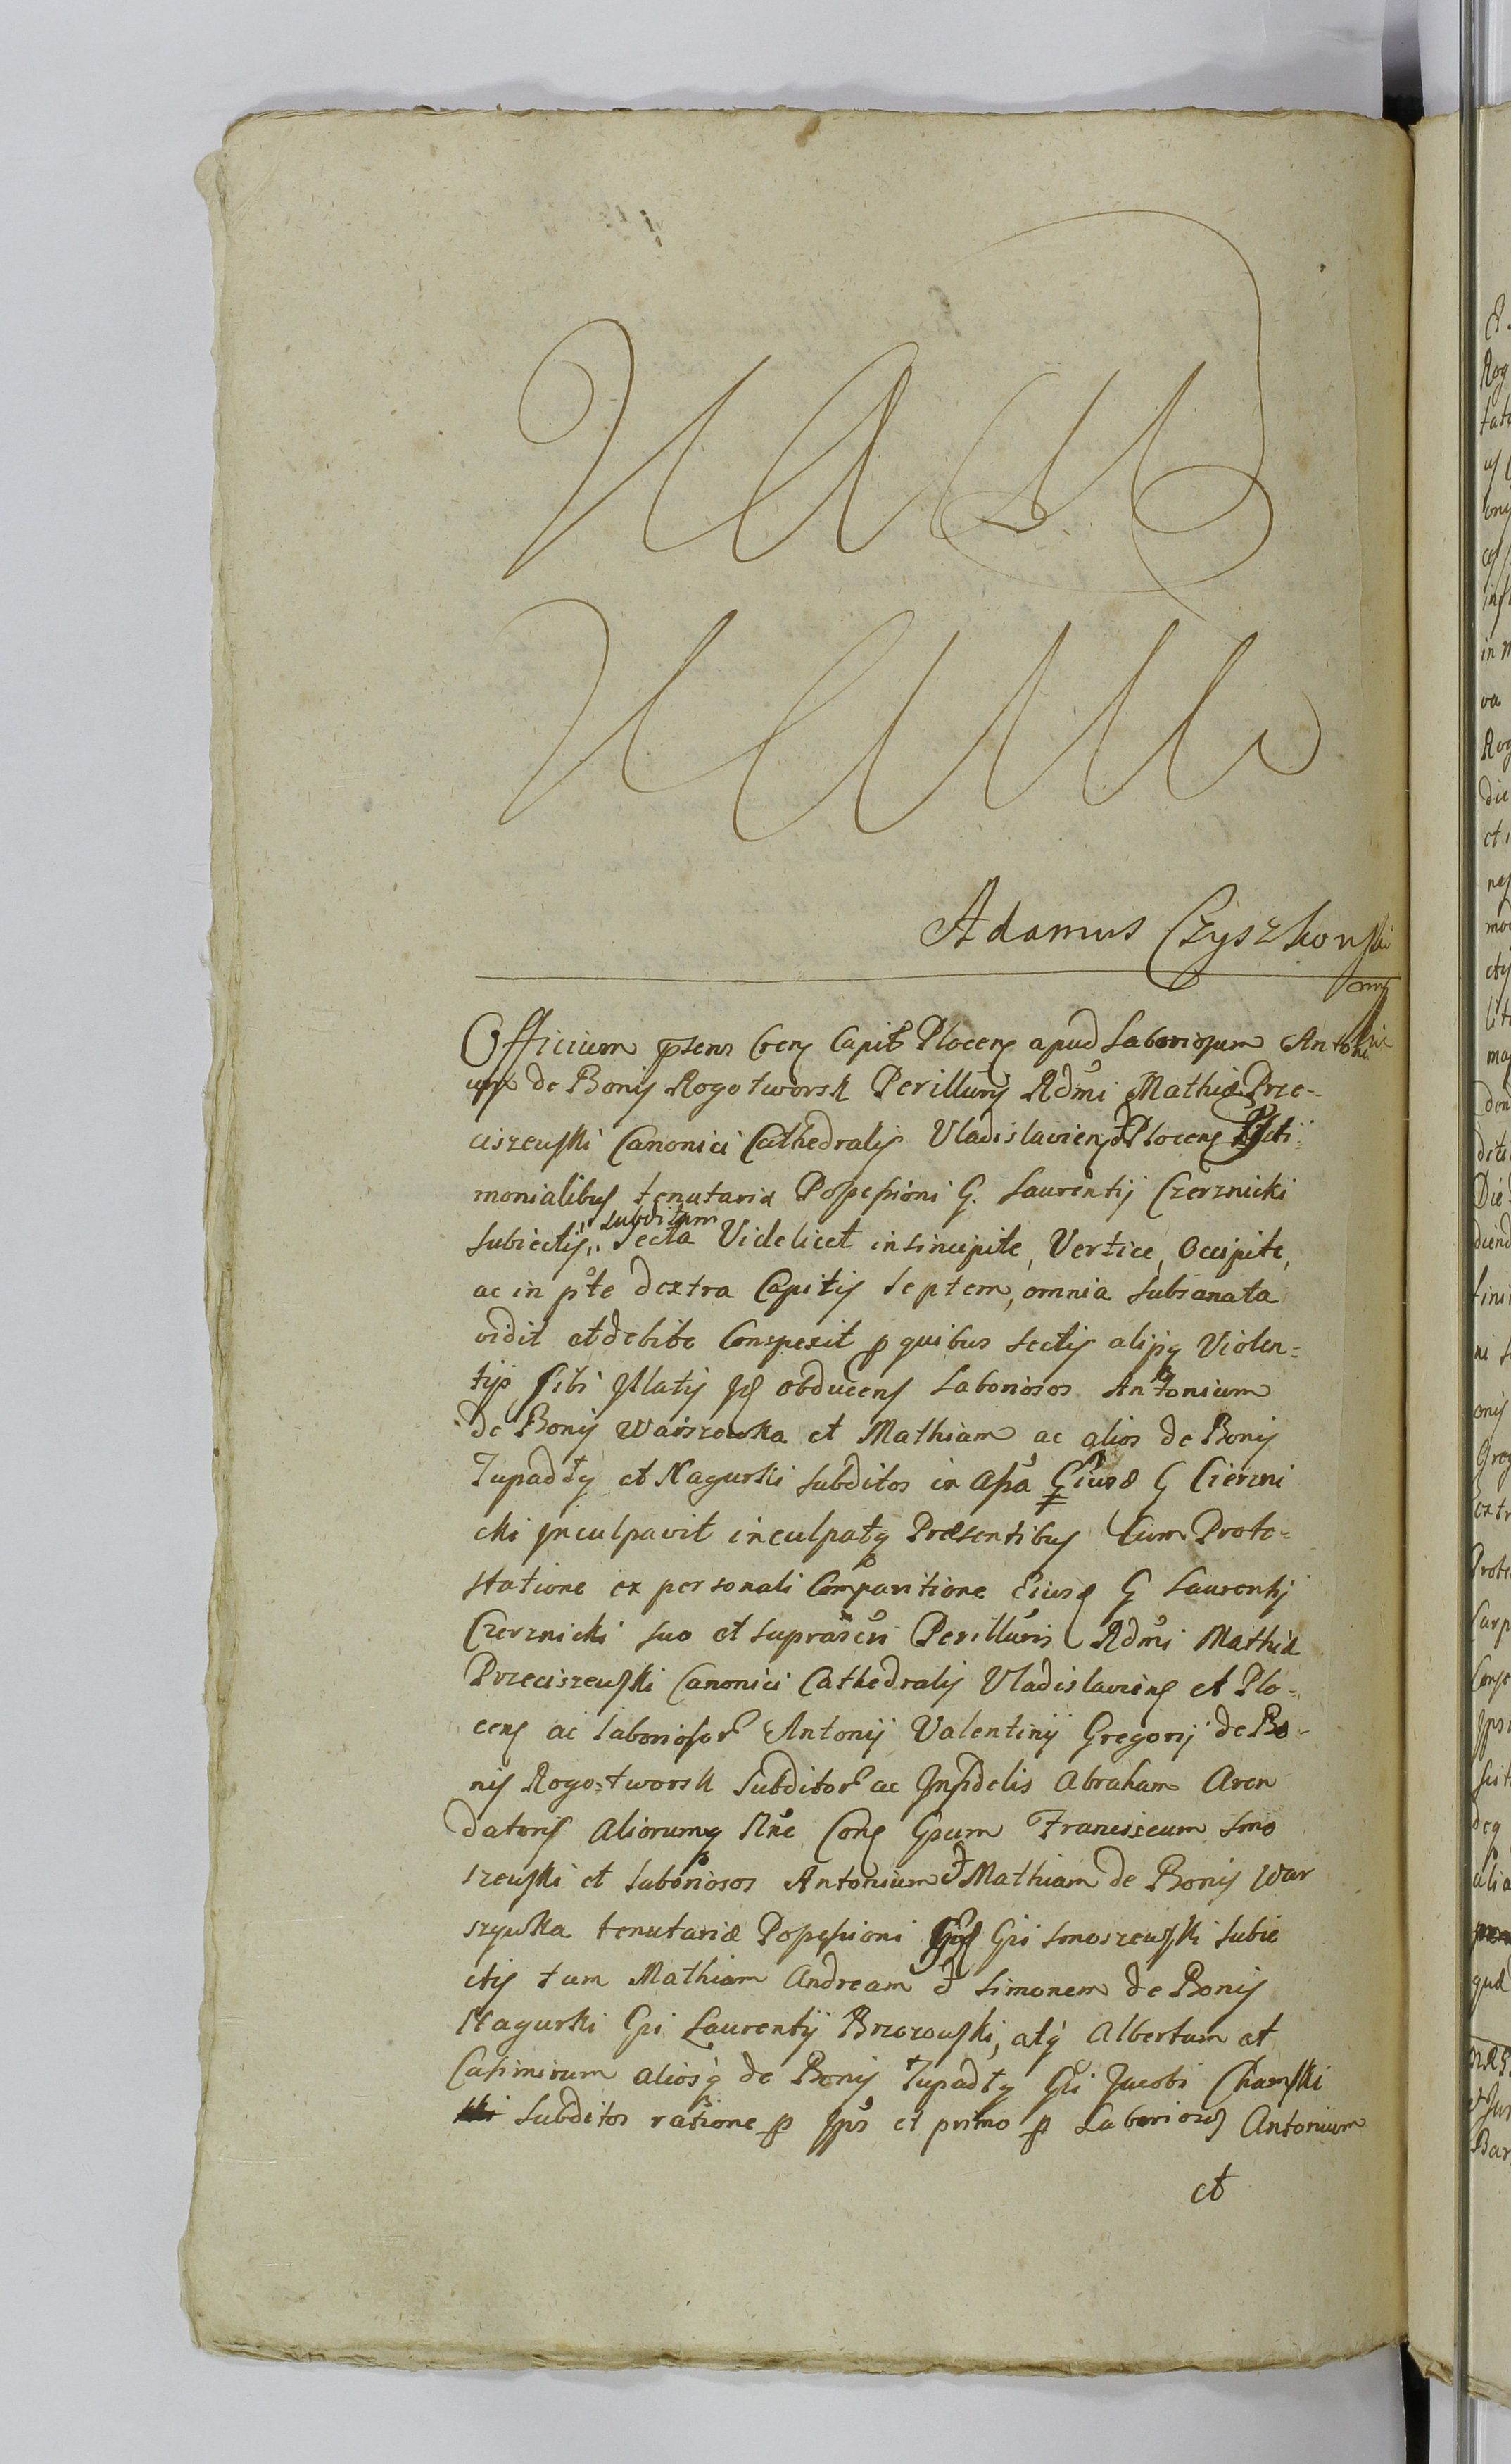 Adamus Czyszkowski
mp
Officium psens Cren Capit Plocen apud Laboriosum Antoni
um de Bonis Rogotworsk Perillus Rdmi Mathiæ Prze-
ciszewski Canonici Cathedralis Vladislavien et Plocen
monialibus tenutariæ Possessioni G. Laurentij Czerznicki
subditum
Subiectis secta Videlicet in sincipite, Vertice, Occipite,
ac in pte dextra Capitis Septem, omnia Subsanata
vidit et debite Conspexit p quibus sectis alijsq Violen=
tijs sibi Illatis obducens Laboriosos Antonium
de Bonis Warszewka et Mathiam ac alios de Bonis
Tupadły et Nagurki Subditos in G Czerzni
cki Inculpavit inculpatq Præsentibus Cum Prote=
statione ex personali Comparitione Eiusd G Laurentij
Czerznicki suo et suprascri Perilluris Rdmi Mathiæ
Przeciszewski Canonici Cathedralis Vladislavien et Plo=
cen ac laboriosor Antonij Valentinij Gregorij de Bo-
nis Rogo=tworsk Subditor ac Infidelis Abraham Aren
datoris Aliorumq Con Gsum Franciscum Smo
szewski et Laboriosos Antonium et Mathiam de Bonis War
szewka tenutariæ Possessioni Gsi Smoszewski Subie
ctis tum Mathiam Andream et Simonem de Bonis
Nagurki Gsi Laurentij Brzozowski, atq Albertum et
Casimirum aliosq de Bonis Tupadły Gsi Jacobi Chamski
Subditos ratione p Ipsos et primo p Laboriosos Antonium
et